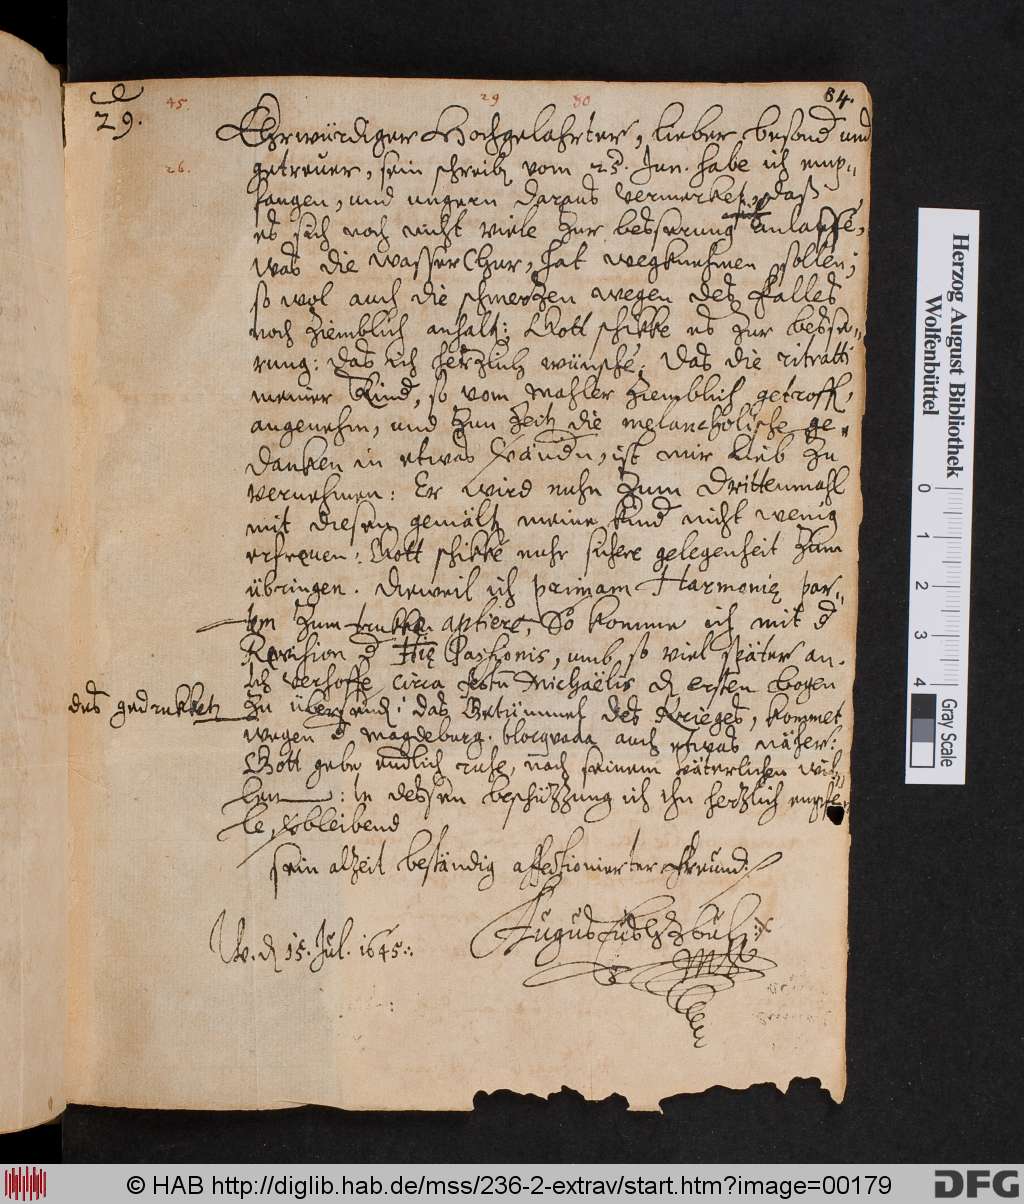 29.
45.
29
80
84.
26.
Ehrwürdiger Hochgelahrter, lieber besond und
getreuer, sein schreiben vom 25. Jun. habe ich emp-
fangen, und ungern daraus vermerket, daß
es sich noch nicht viele zur besserung anlasse,
was die wasser Chur, hat wegknehmen sollen;
so wol auch die schmertzen wegen des Falles
noch ziemblich anhalt: Gott schikke es zur besse-
rung: das ich hertzlich wünsche. Das die ritratti
meiner Kind, so vom Mahler ziemblich getroffen,
angenehm, und zun Zeiten die melancholische ge-
danken in etwas, ist mir lieb zu
vernehmen: Er wird nuhn zum drittenmahl
mit diesen gemälten meine Kind nicht wenig
erfreuen: Gott schikke nuhr sichere gelegenheit zum
übringen. Dieweil ich primam Harmoniæ par-
tem zum trukken aptiere, So komme ich mit d
Revision d Hiæ Passionis, umb so viel später an.
Ich verhoffe circa festu Michaëlis den ersten bogen
des gedrukketen
zu übersenden: das Getümmel des Krieges, kommet
wegen d Magdeburg. blocquada auch etwas näher:
Gott gebe endlich ruhe, nach seinem väterlichen wil-
len: In dessen beschützung ich ihn hertzlich empfeh-
le, verbleibend
sein alzeit beständig affectionierter Freund:
Augustus HzBuL
W. den 15. Jul. 1645.
Herzog August Bibliothek
Wolfenbüttel
0 1 2 3 4
Gray Scale
© HAB http://diglib.hab.de/mss/236-2-extrav/start.htm?image=00179
DFG